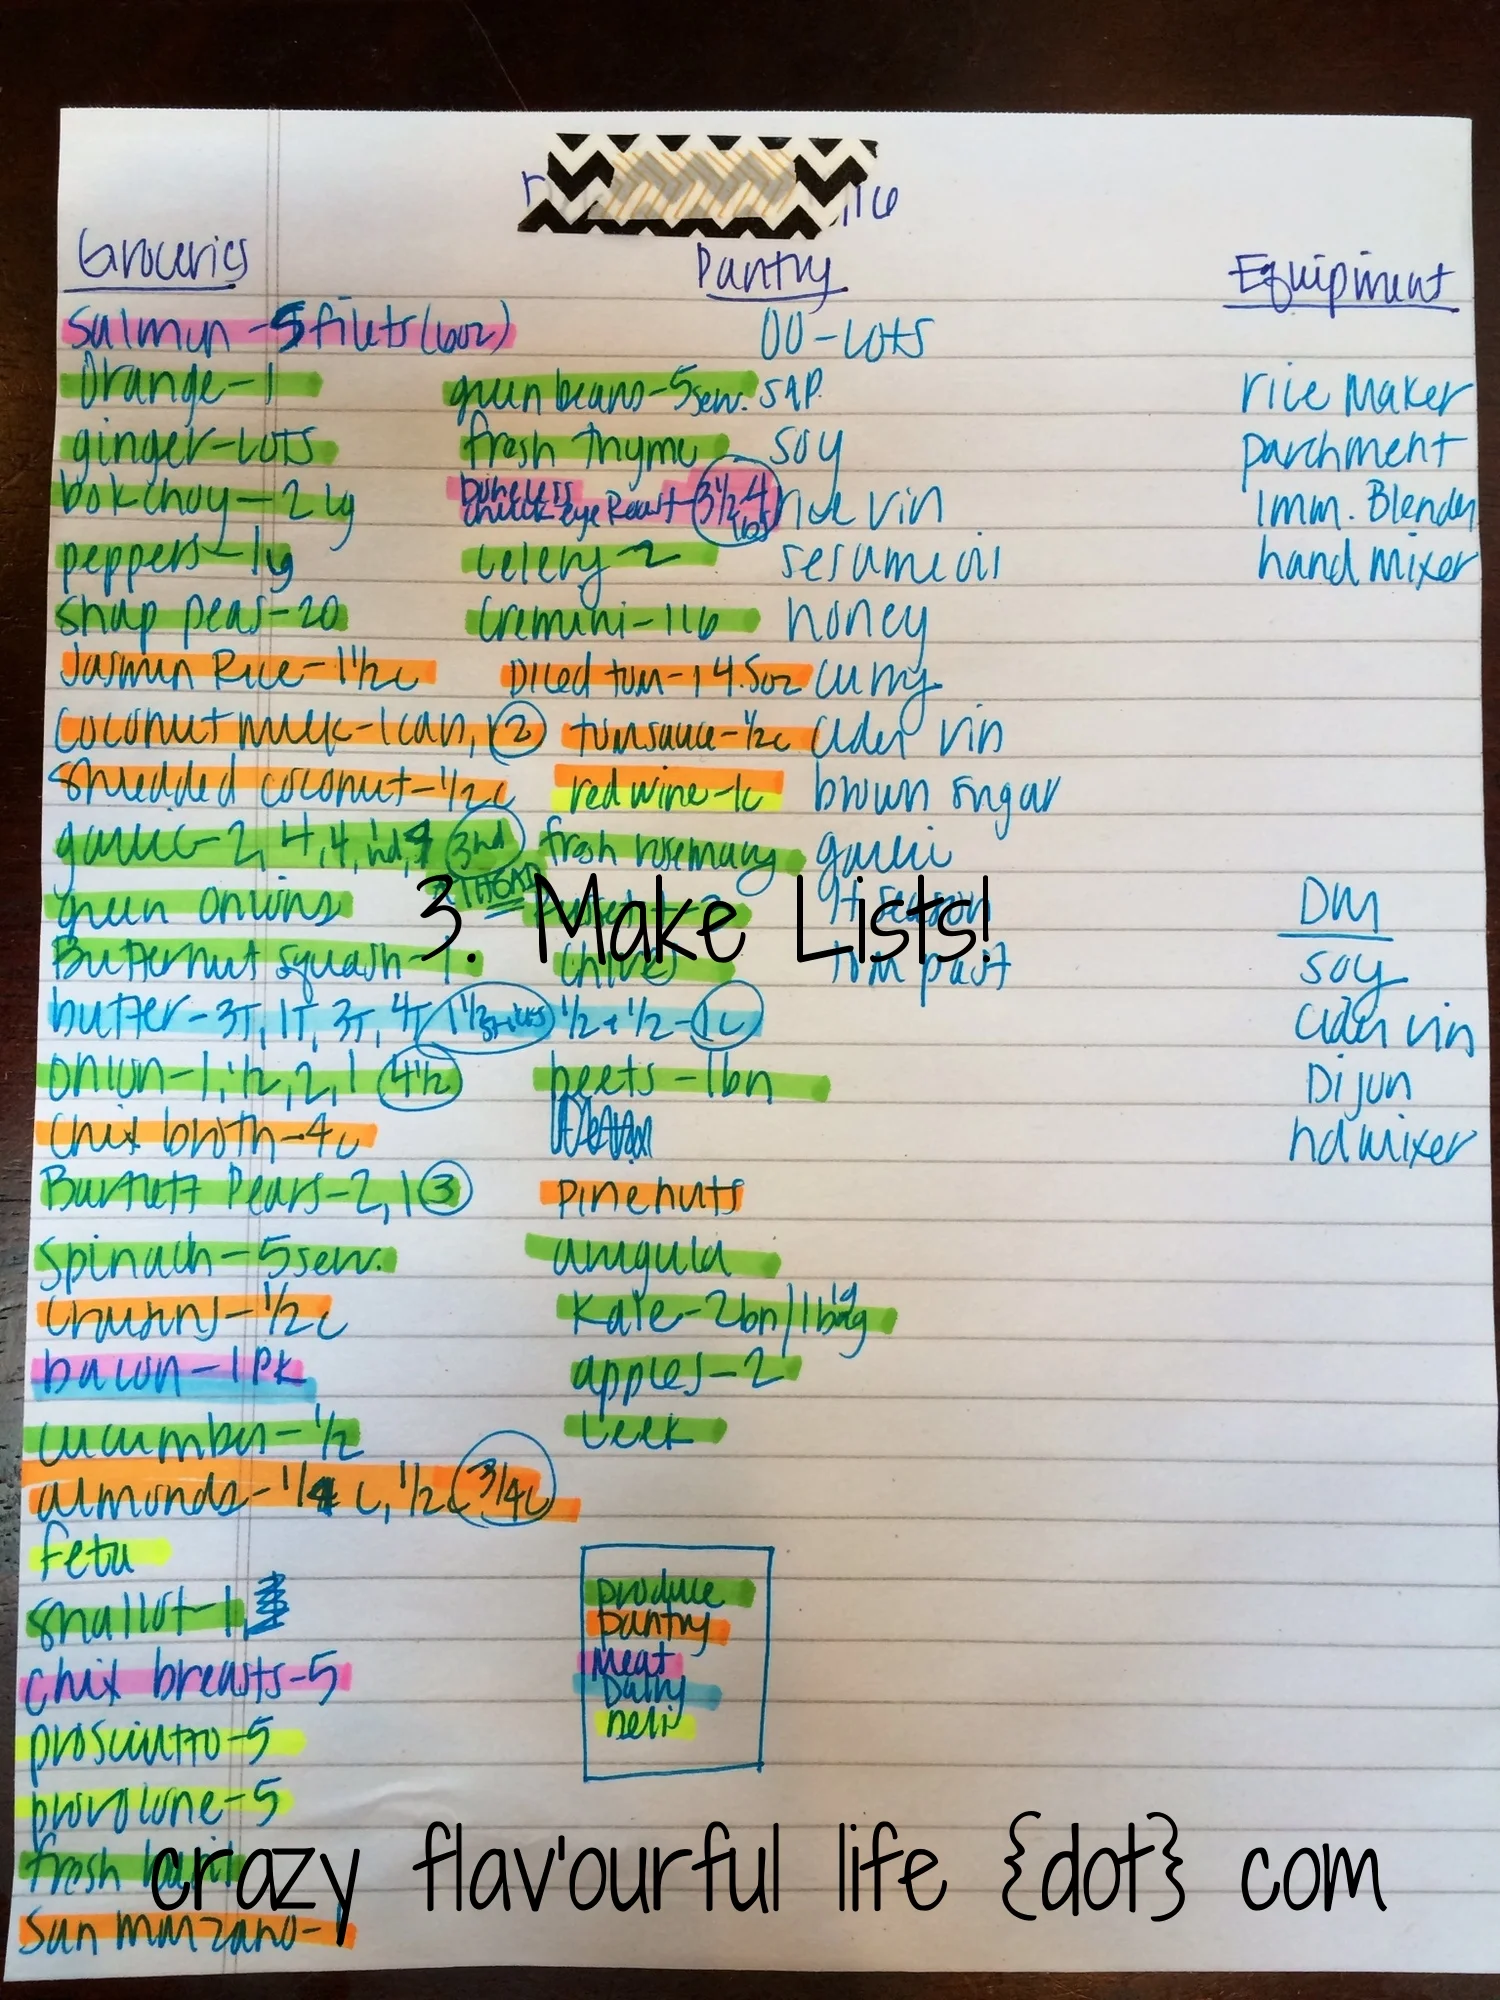 Groceries
Pantry
Equipment
Salmon - 5 filets (6oz)
OO - LOTS
Orange - 1
green beans - 5 serv.
S&P
rice Maker
ginger - LOTS
fresh thyme
soy
parchment
bok choy - 2 lg
boneless
chuck eye Roast - 3 1/2-4 lbs
rice vin
Imm. Blender
peppers - 1 lg
celery 2
sesame oil
hand mixer
snap peas - 20
cremini - 1 lb
honey
Jasmin Rice - 1 1/2 c
Diced tom - 14.5oz
curry
coconut milk - 1 can, 1 2
tom sauce - 1/2 c
cider vin
shredded coconut - 1/2 c
red wine - 1c
brown sugar
garlic - 2, 4, 4, 1 hd, 4 3 hd
fresh rosemary
garlic
green onions
3. Make Lists!
DM
Butternut squash - 1
chives
tom past
soy
butter - 3T, 1T, 3T, 4T 1 1/2 sticks 1/2 + 1/2 - 1c
cider vin
onion - 1, 1/2, 2, 1 4 1/2
beets - 1bn
Dijon
chix broth - 4c
hd mixer
Bartlett Pears - 2, 1 3
pinenuts
spinach - 5 serv.
arugula
1/2 c
Kale - 2bn / 1 lg bag
bacon - 1 PK
apples - 2
cucumber - 1/2
Leek
almonds - 1/4 c, 1/2 c 3/4c
feta
shallot - 1
produce
pantry
Meat
Dairy
Deli
chix breasts - 5
prosciutto - 5
provolone - 5
fresh
crazy flav'ourful life {dot} com
San Marzano - 1